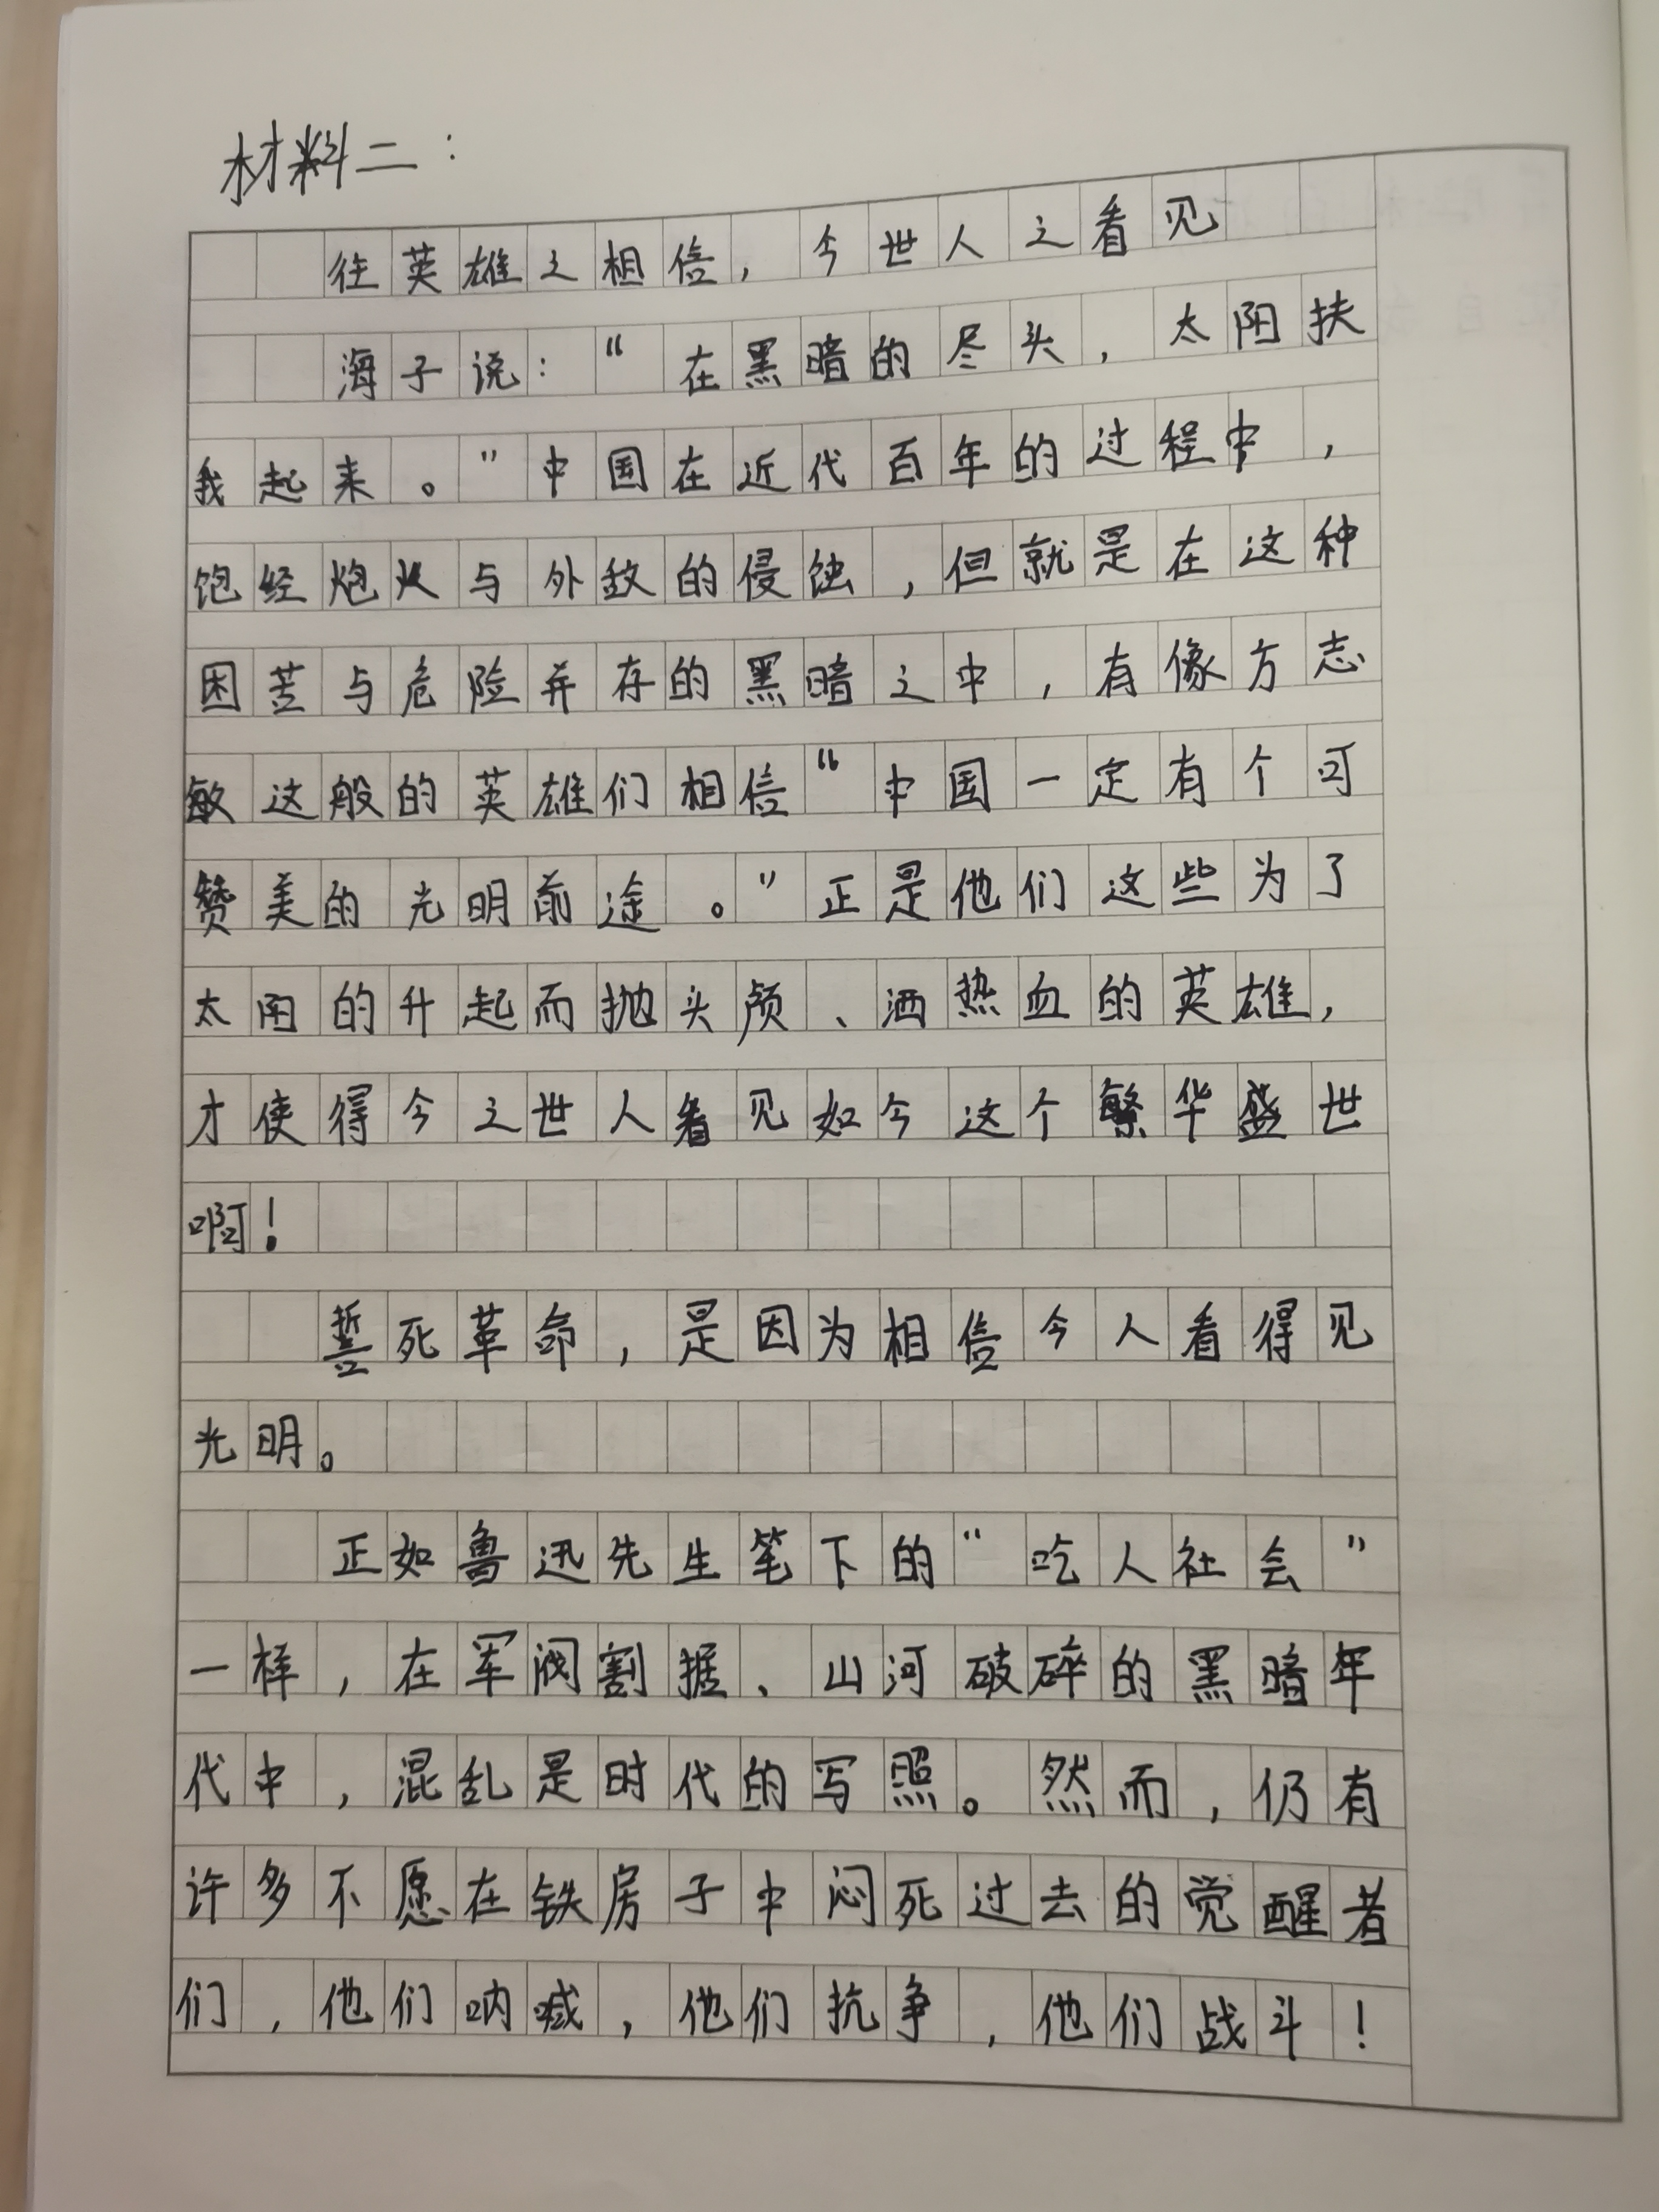 材料二：
往英雄之相信，今世人之看见
海子说："在黑暗的尽头，太阳扶
我起来。"中国在近代百年的过程中，
饱经炮火与外敌的侵蚀，但就是在这种
困苦与危险并存的黑暗之中，有像方志
敏这般的英雄们相信"中国一定有个可
赞美的光明前途。"正是他们这些为了
太阳的升起而抛头颅、洒热血的英雄，
才使得今之世人看见如今这个繁华盛世
啊！
誓死革命，是因为相信今人看得见
光明。
正如鲁迅先生笔下的"吃人社会"
一样，在军阀割据、山河破碎的黑暗年
代中，混乱是时代的写照。然而，仍有
许多不愿在铁房子中闷死过去的觉醒者
们，他们呐喊，他们抗争，他们战斗！